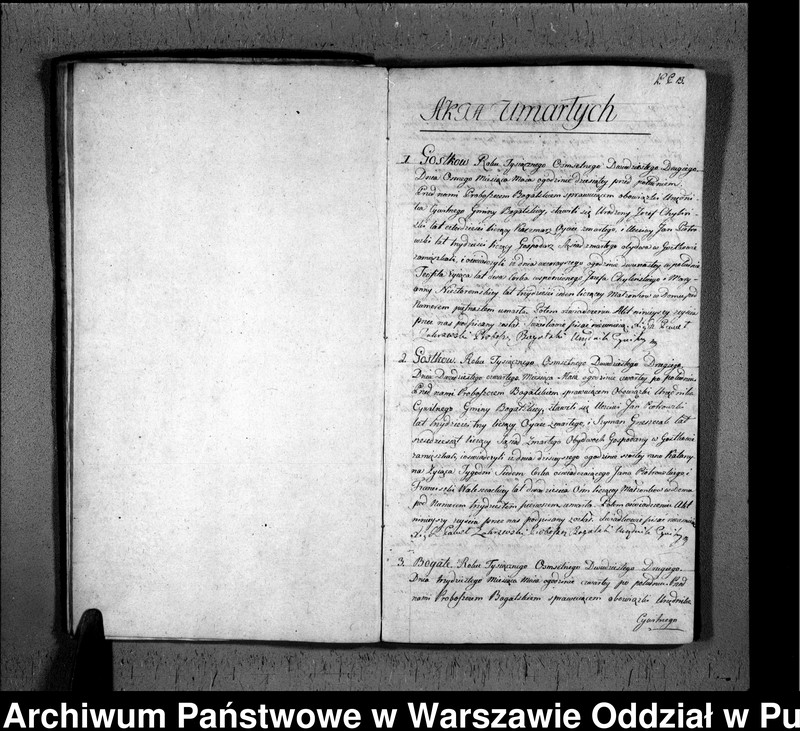 Akta Umarłych
1 Gostkow Roku Tysiącznego Osmsetnego Dwudziestego Drugiego
Dnia Osmego Miesiąca Maja o godzinie dziesiątey przed południem
Przed nami Proboszczem Bogatskiem sprawuiącem obowiązki Urzędni
ka Cywilnego Gminy Bogatskiey, stawili się Urodzony Jozef Chyliń
ski lat czterdziesci liczący Oyciec zmarłego, i Uczciwy Jan Piotro
wski lat trzydziesci liczący Gospodarz Sąsiad zmarłego obydwa w Gostkowie
zamieszkali, i oswiadczyli iż dnia wczorayszego o godzinie dwunastey w południe
Teofila żyiąca lat dwa Corka wspomnionego Jozefa Chylińskiego i Mary
anny lat trzydziesci ieden liczącey Małżonkow w domu pod
Numerem piętnastem umarła. Potem oswiadczeniu Akt ninieyszy
przez nas podpisany został pisac nieumieią. Xiądz Paweł
Zakrzewski Proboszcz Bogatski Urzędnik Cywilny
2. Gostkow. Roku Tysiącznego Osmsetnego Dwudziestego Drugiego
Dnia Dwudziestego czwartego Miesiąca Maja o godzinie czwartey po południu
Przed nami Proboszczem Bogatskiem sprawuiącem Obowiązki Urzędnika
Cywilnego Gminy Bogatskiey, stawili się Uczciwi Jan Piotrowski
lat trzydziesci trzy liczący Oyciec zmarłego, i Szyman lat
szescdziesiąt liczący Sąsiad zmarłego Obydwoch Gospodarzy w Gostkowie
zamieszkali, i oswiadczyli iż dnia dzisieyszego o godzinie szostey rano Katarzy
na żyiąca Tygodni Siedem Corka oswiadczaiącego Jana Piotrowskiego i
Franciszki lat dwadziescia Osm liczącey Małżonkow w domu
pod Numerem trzydziestem pierwszem umarła. Potem oswiadczeniu Akt
ninieyszy przez nas podpisany został. pisac nieumieią
Xiądz Paweł Zakrzewski Proboszcz Bogatski Urzędnik Cywilny
3. Bogate. Roku Tysiącznego Osmsetnego Dwudziestego Drugiego
Dnia trzydziestego Miesiąca Maja o godzinie czwartey po południu. Przed
nami Proboszczem Bogatskiem sprawuiącem obowiązki Urzędnika
Cywilnego
Archiwum Państwowe w Warszawie Oddział w Pu